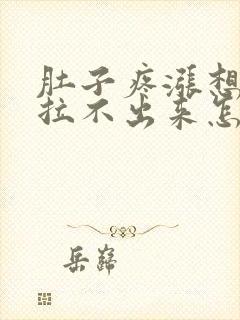 肚子疼涨想
拉不出来怎
岳巍